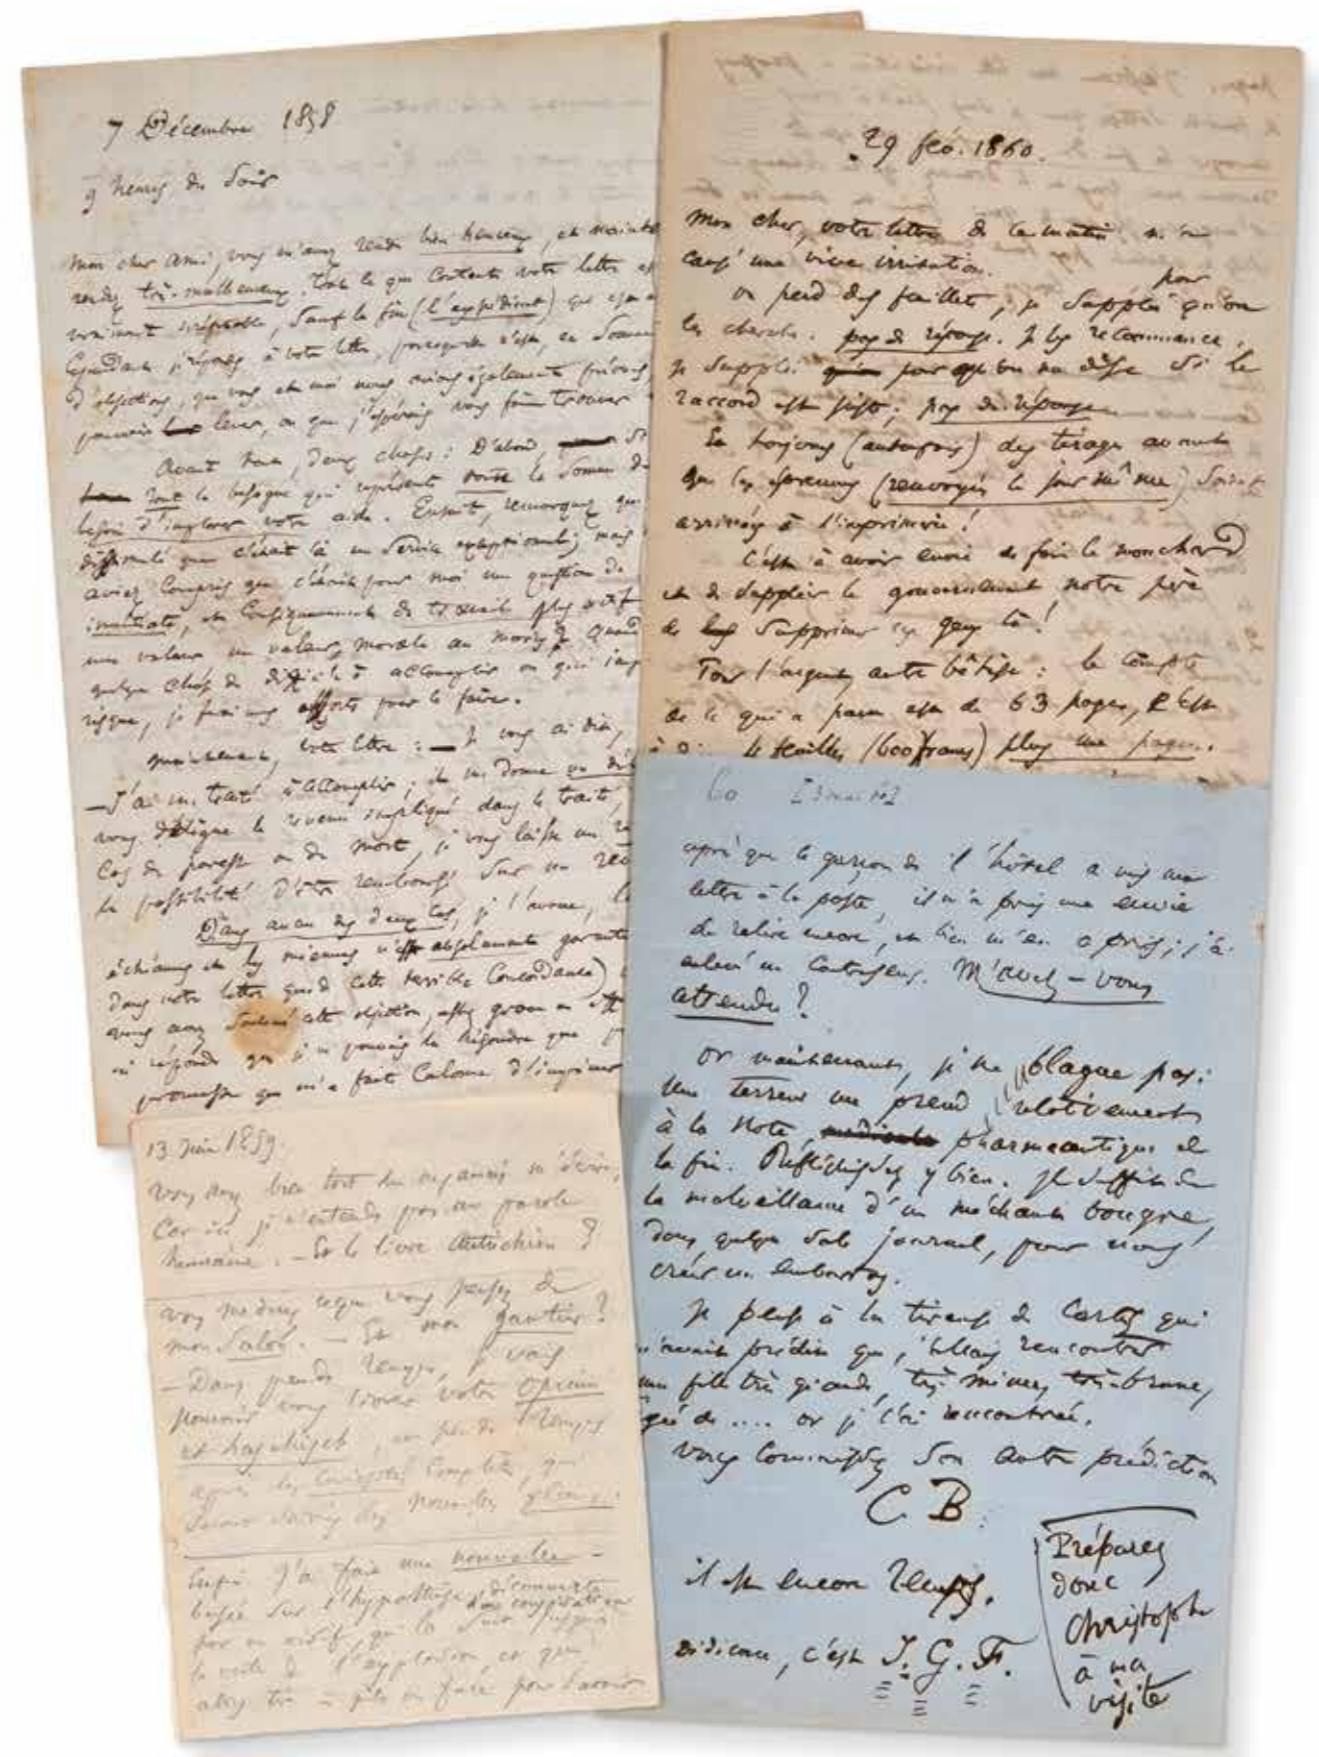 7 Décembre 1858
9 heures du soir
mon cher ami, vous m'avez rendu bien heureux, et mainte
rendez très-malheureux. Tout ce que contient votre lettre est
vraiment irréfutable, sauf la fin (l'expédient) qui
Cependant je réponds à votre lettre, parce que c'est, en somme
d'objections, que vous et moi nous avions également prévues,
pouvoir lever, ou que j'espérais vous faire trouver
Avant tout, deux choses : D'abord, si
tout la besogne qui représente toute la somme de
besoin d'implorer votre aide. Ensuite, remarquez que
dissimulé que c'était là un service exceptionnel; mais
aviez compris que c'était pour moi une question de
immédiate, et conséquemment de travail plus actif
une valeur, morale au moins. Quand
quelque chose de difficile à accomplir ou qui
risque, je fais mes efforts pour le faire.
maintenant, votre lettre : — Je vous ai dit,
— J'ai un traité à accomplir; il me donne un
vous délègue le revenu impliqué dans le traité,
Cas de paresse ou de mort, je vous laisse un
la possibilité d'être remboursé sur un
Dans aucun des deux cas, je l'avoue,
échéances et les miennes n'est absolument garanti
dans votre lettre que de cette terrible concordance)
vous avez soulevé cette objection, assez grave en effet
ni réponds que je ne pouvais la résoudre que
promesse que m'a faite Calonne d'imprimer
29 fév. 1860.
Mon cher, votre lettre de ce matin m'a
causé une vive irritation.
On perd des feuillets, je supplie pour qu'on
les cherche. pas de réponse. Je les recommence,
je supplie pour qu'on me dise si le
raccord est juste; pas de réponse
Et toujours (autrefois) des tirages avant
que les épreuves (renvoyées le jour même) soient
arrivées à l'imprimerie!
C'est à avoir envie de faire le mouchard
et de supplier le gouvernement notre père
de supprimer ces gens là!
Pour l'argent, autre bêtise : le compte
de ce qui a paru est de 63 pages, c'est
feuilles (600 francs) plus une page.
60
après que le garçon de l'hôtel a mis ma
lettre à la poste, il m'a pris une envie
de relire encore, et bien m'en a pris; j'ai
enlevé un contresens. M'avez-vous
attendu?
Or maintenant, je ne blague pas:
Une terreur me prend relativement
à la Note pharmaceutique de
la fin. Réfléchissez y bien. Il suffit de
la malveillance d'un méchant bougre,
dans quelque sale journal, pour nous
créer un embarras.
Je pense à la tireuse de Cartes qui
m'avait prédit que j'allais rencontrer
une fille très grande, très mince, très-brune,
âgée de .... or je l'ai rencontrée.
Vous connaissez son autre prédiction
C. B.
il est encore temps.
Didicace, c'est J. G. F.
Préparez
donc
Christophe
à ma
visite
13 Juin 1859.
vous avez bien tort de ne jamais m'écrire,
Car ici je n'entends pas une parole
humaine. — Et le livre Autrichien?
vous me direz ce que vous pensez de
mon Salon. — Et mon Gautier?
— Dans peu de temps, je vais
pouvoir vous livrer votre opium
et haschisch, en peu de temps
après les Curiosités complètes, qui
seront suivies des Nouvelles fleurs.
Enfin j'ai fait une nouvelle
basée sur l'hypothèse : découverte
d'une conspiration
par un oisif, qui la suit jusqu'à
la veille de l'explosion et qui
alors tire à pile ou face pour savoir